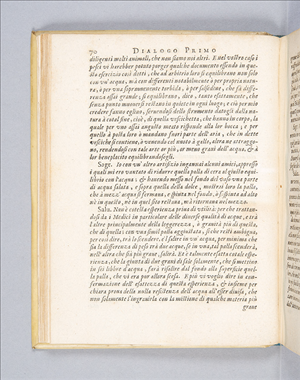 70 DIALOGO PRIMO
diligenti molti animali, che non siamo noi altri. E nel vostro caso i
pesci vi harebber potuto porger qualche documento essendo in que-
sto esercizio così dotti, che ad arbitrio loro si equilibrano non solo
con un' acqua, mà con differenti notabilmente ò per propria natu-
ra, ò per una sopravvenente torbida, ò per salsedine, che fà diffe-
renza assai grande; si equilibrano, dico, tanto esattamente, che
senza punto muoversi restano in quiete in ogni luogo; e ciò per mio
credere fanno eglino, servendosi dello strumento datogli dalla na-
tura à cotal fine, cioè, di quella vescichetta, che hanno in corpo, la
quale per uno assai angusto meato risponde alla lor bocca; e per
quello à posta loro ò mandano fuori parte dell' aria, che in dette
vesciche si contiene, ò venendo col nuoto à galla, altra ne attraggo-
no, rendendosi con tale arte or più, or meno gravi dell' acqua, & à
lor beneplacito equilibrandosegli.
Sagr. Io con un' altro artifizio ingannai alcuni amici, appresso
i quali mi era vantato di ridurre quella palla di cera al giusto equi-
librio con l'acqua; & havendo messo nel fondo del vaso una parte
di acqua salata, e sopra quella della dolce, mostrai loro la palla,
che à mezz' acqua si fermava, e spinta nel fondo, ò sospinta ad alto
nè in questo, nè in quel sito restava, mà ritornava nel mezzo.
Salu. Non è cotesta esperienza priva di utilità; perche trattan-
dosi da i Medici in particolare delle diverse qualità di acque, e trà
l'altre principalmente della leggerezza, ò gravità più di questa,
che di quella: con una simil palla aggiustata, sì che resti ambigua,
per così dire, trà lo scendere, e'l salire in un' acqua, per minima che
sia la differenza di peso trà due acque, se in una tal palla scenderà,
nell' altra che sia più grave, salirà. Et è talmente esatta cotale espe-
rienza, che la giunta di due grani di sale solamente, che si mettino
in sei libbre d'acqua, farà risalire dal fondo alla superficie quel-
la palla, che vi era pur allora scesa. E più vi voglio dire in con-
fermazione dell' esattezza di questa esperienza, & insieme per
chiara prova della nulla resistenza dell' acqua all'esser divisa, che
non solamente l'ingravirla con la mistione di qualche materia più
grave